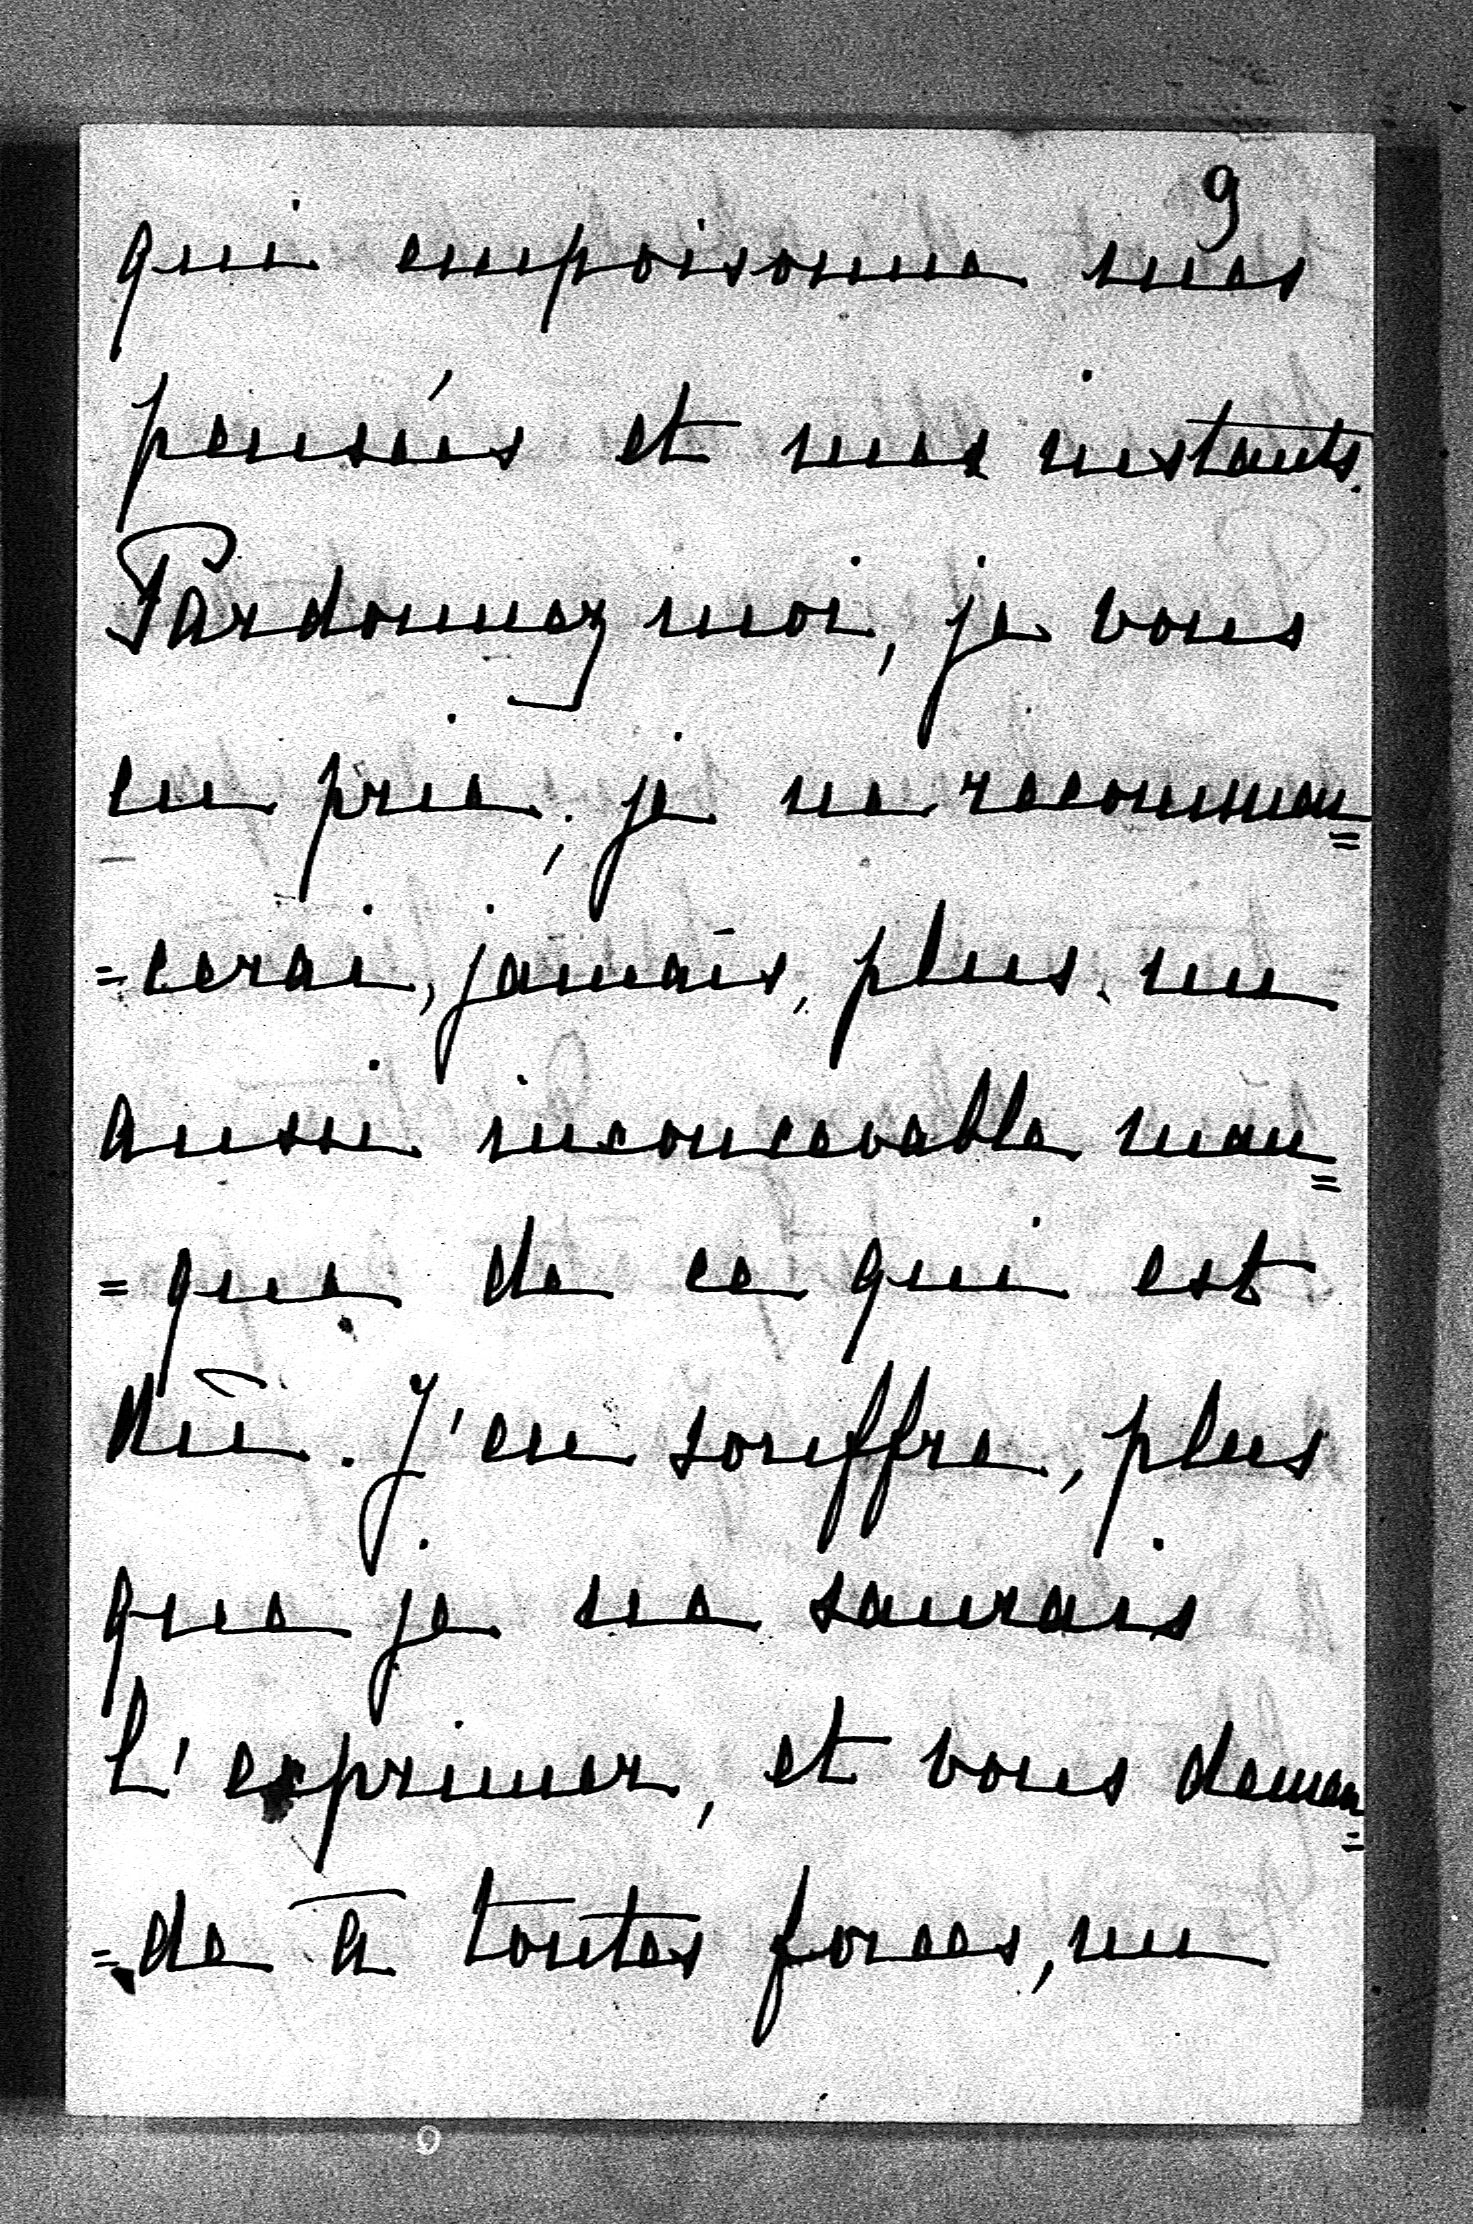 9
qui empoisonne mes
pensées et mes instants.
Pardonnez moi, je vous
en prie; je ne recommen=
=cerai, jamais, plus, un
aussi inconcevable man=
=que de ce qui est
dû. J'en souffre, plus
que je ne saurais
l'exprimer, et vous deman=
=de à toutes forces, un